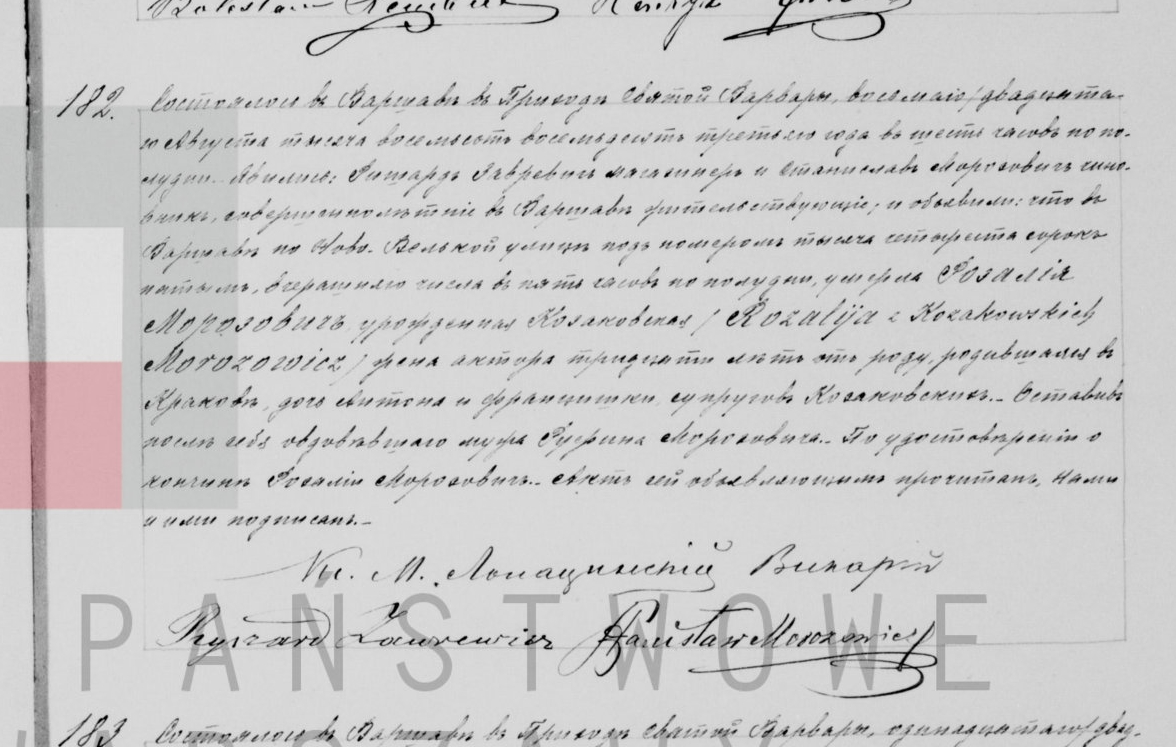 182. Состоялось въ Варшавѣ въ Приходѣ Святой Варвары, восьмаго/двадцата-
го Августа тысяча восемьсотъ восемьдесятъ третьяго года въ шесть часовъ по по-
лудни. Явились: Ришардъ магазинеръ и Станиславъ Морозовичъ чино-
вникъ, совершеннолѣтніе въ Варшавѣ жительствующіе, и объявили: что въ
Варшавѣ по Ново-Велькой улицѣ подъ номеромъ тысяча четыреста сорокъ
пятымъ, вчерашняго числа въ пять часовъ по полудни, умерла Розалія
Морозовичъ, урожденная Козаковская /Rozalija z Kozakowskich
Morozowicz/ жена актора тридцати лѣтъ отъ роду, родившаяся въ
Краковѣ, дочь Антона и Францишки, супруговъ Козаковскихъ. Оставивъ
послѣ себя овдовѣвшаго мужа Руфина Морозовича. По удостовѣреніи о
кончинѣ Розаліи Морозовичъ. Актъ сей объявляющимъ прочитанъ, Нами
и ими подписанъ.
Кс. М. Викарій
Ryszard Stanisław Morozowicz
PAŃSTWOWE
183 Состоялось въ Варшавѣ въ Приходѣ Святой Варвары, одинадцатаго/два-